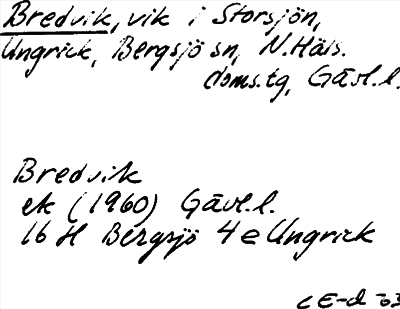 Bredvik, vik i Storsjön,
Ungrick, Bergsjö sn, N. Häls.
doms.tg, Gävl.l.
Bredvik
ek (1960) Gävl.l.
16 H Bergsjö 4 e Ungrick
CE-d -63